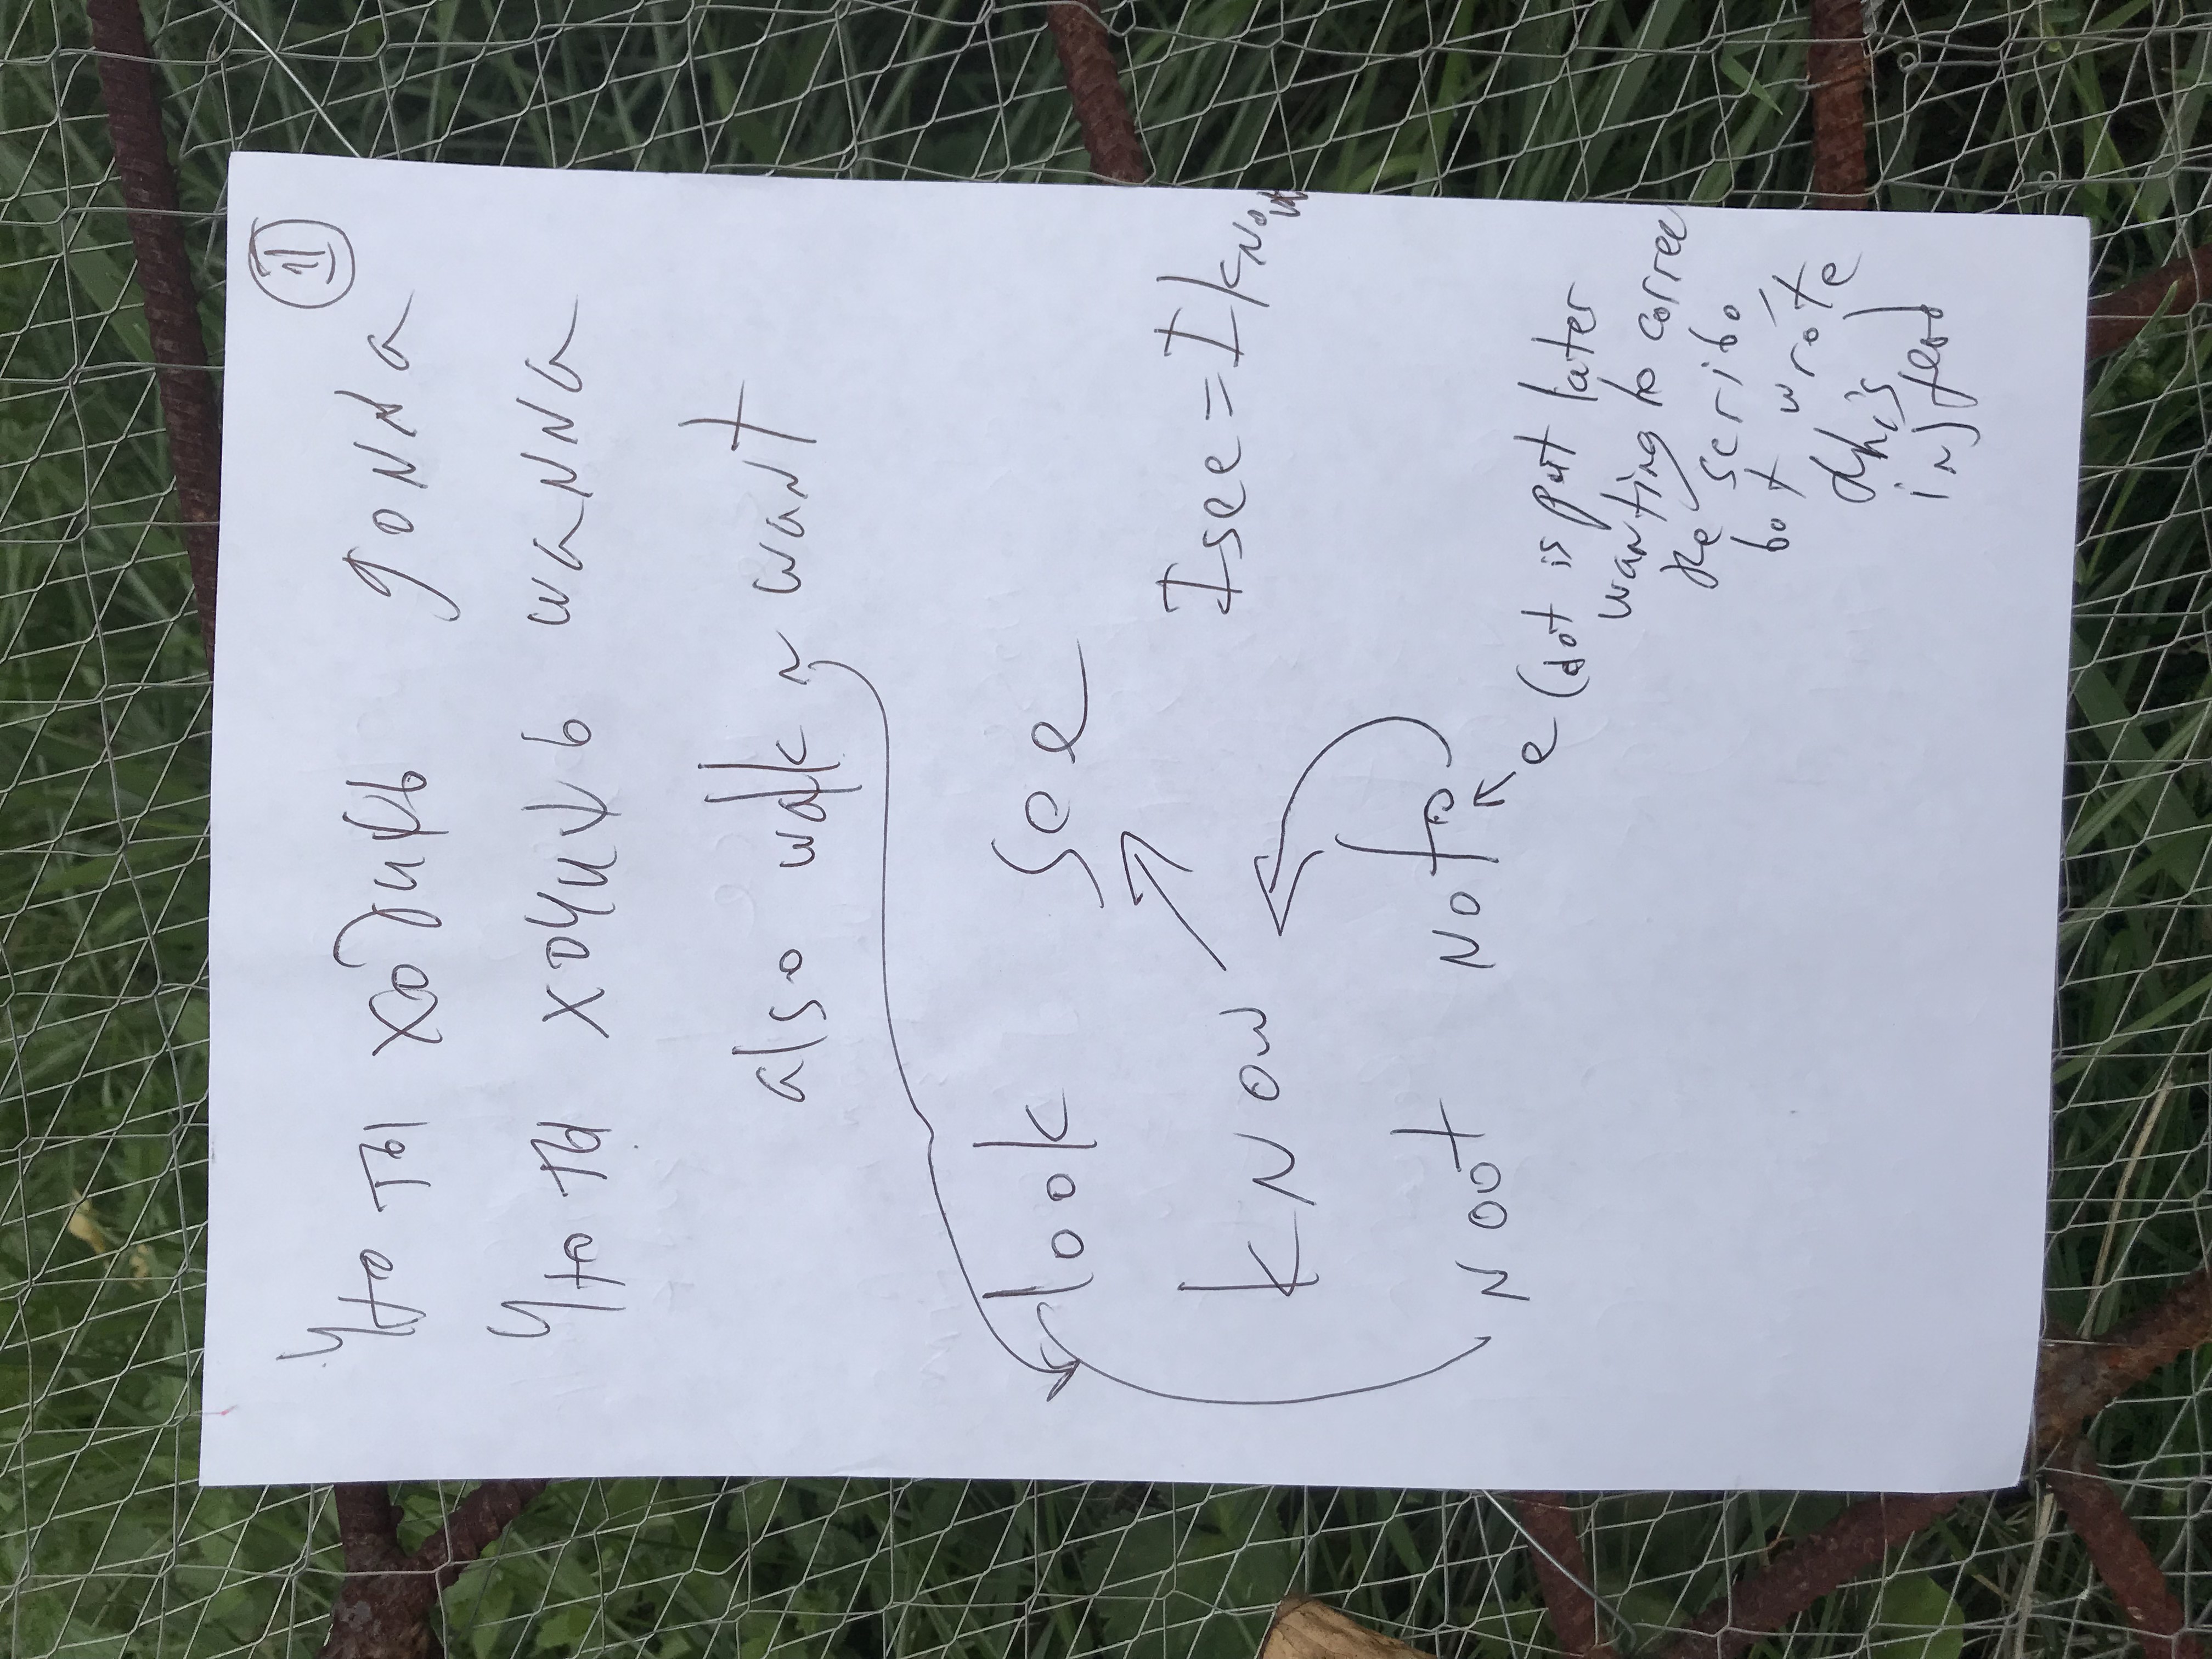 11
Что ты ходиψь gonna
Что ты хочиψь wanna
also walk ~ want
look see
know
I see = I know
noot noto
e (dot is put later
wanting to correc
the scribo,
bot wrote
dhis
instead)